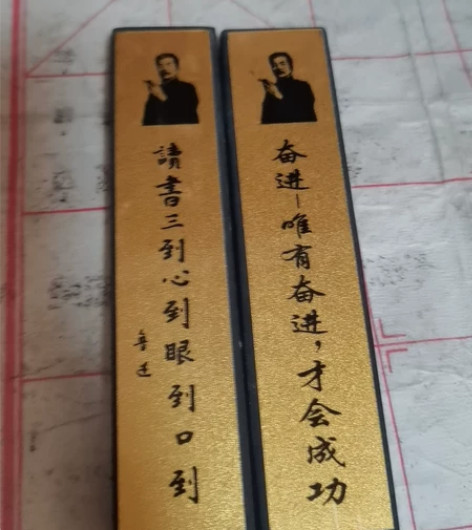 奋进—唯有奋进，才会成功
讀書三到心到眼到口到
魯迅